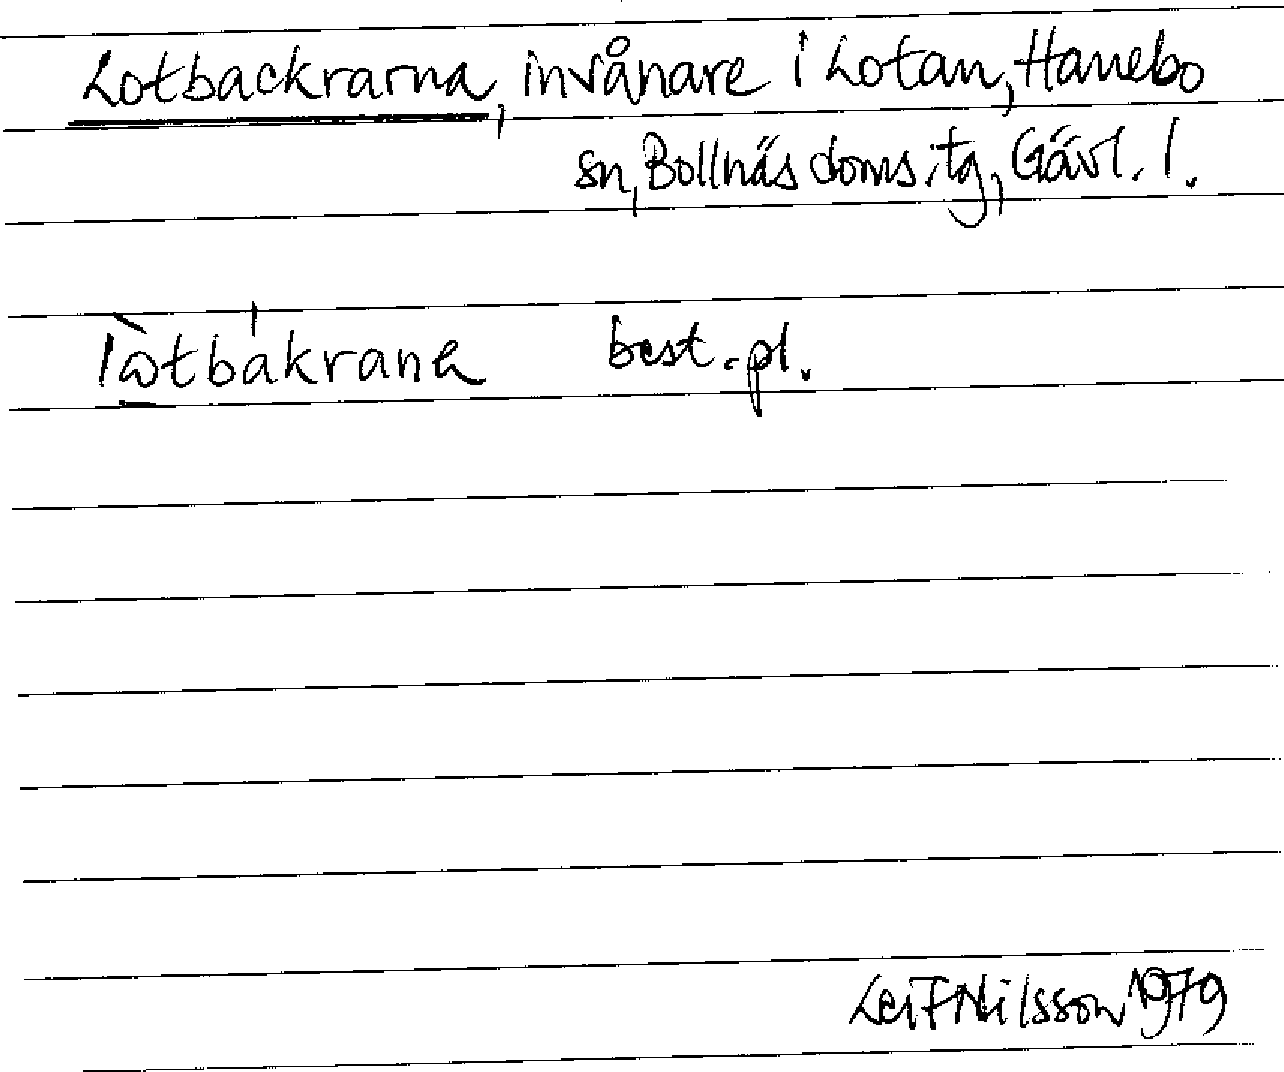 Lotbackrarna, invånare i Lotan, Hanebo
sn, Bollnäs doms.tg, Gävl. l.
lò̠tbákrana best. pl.
Leif Nilsson 1979